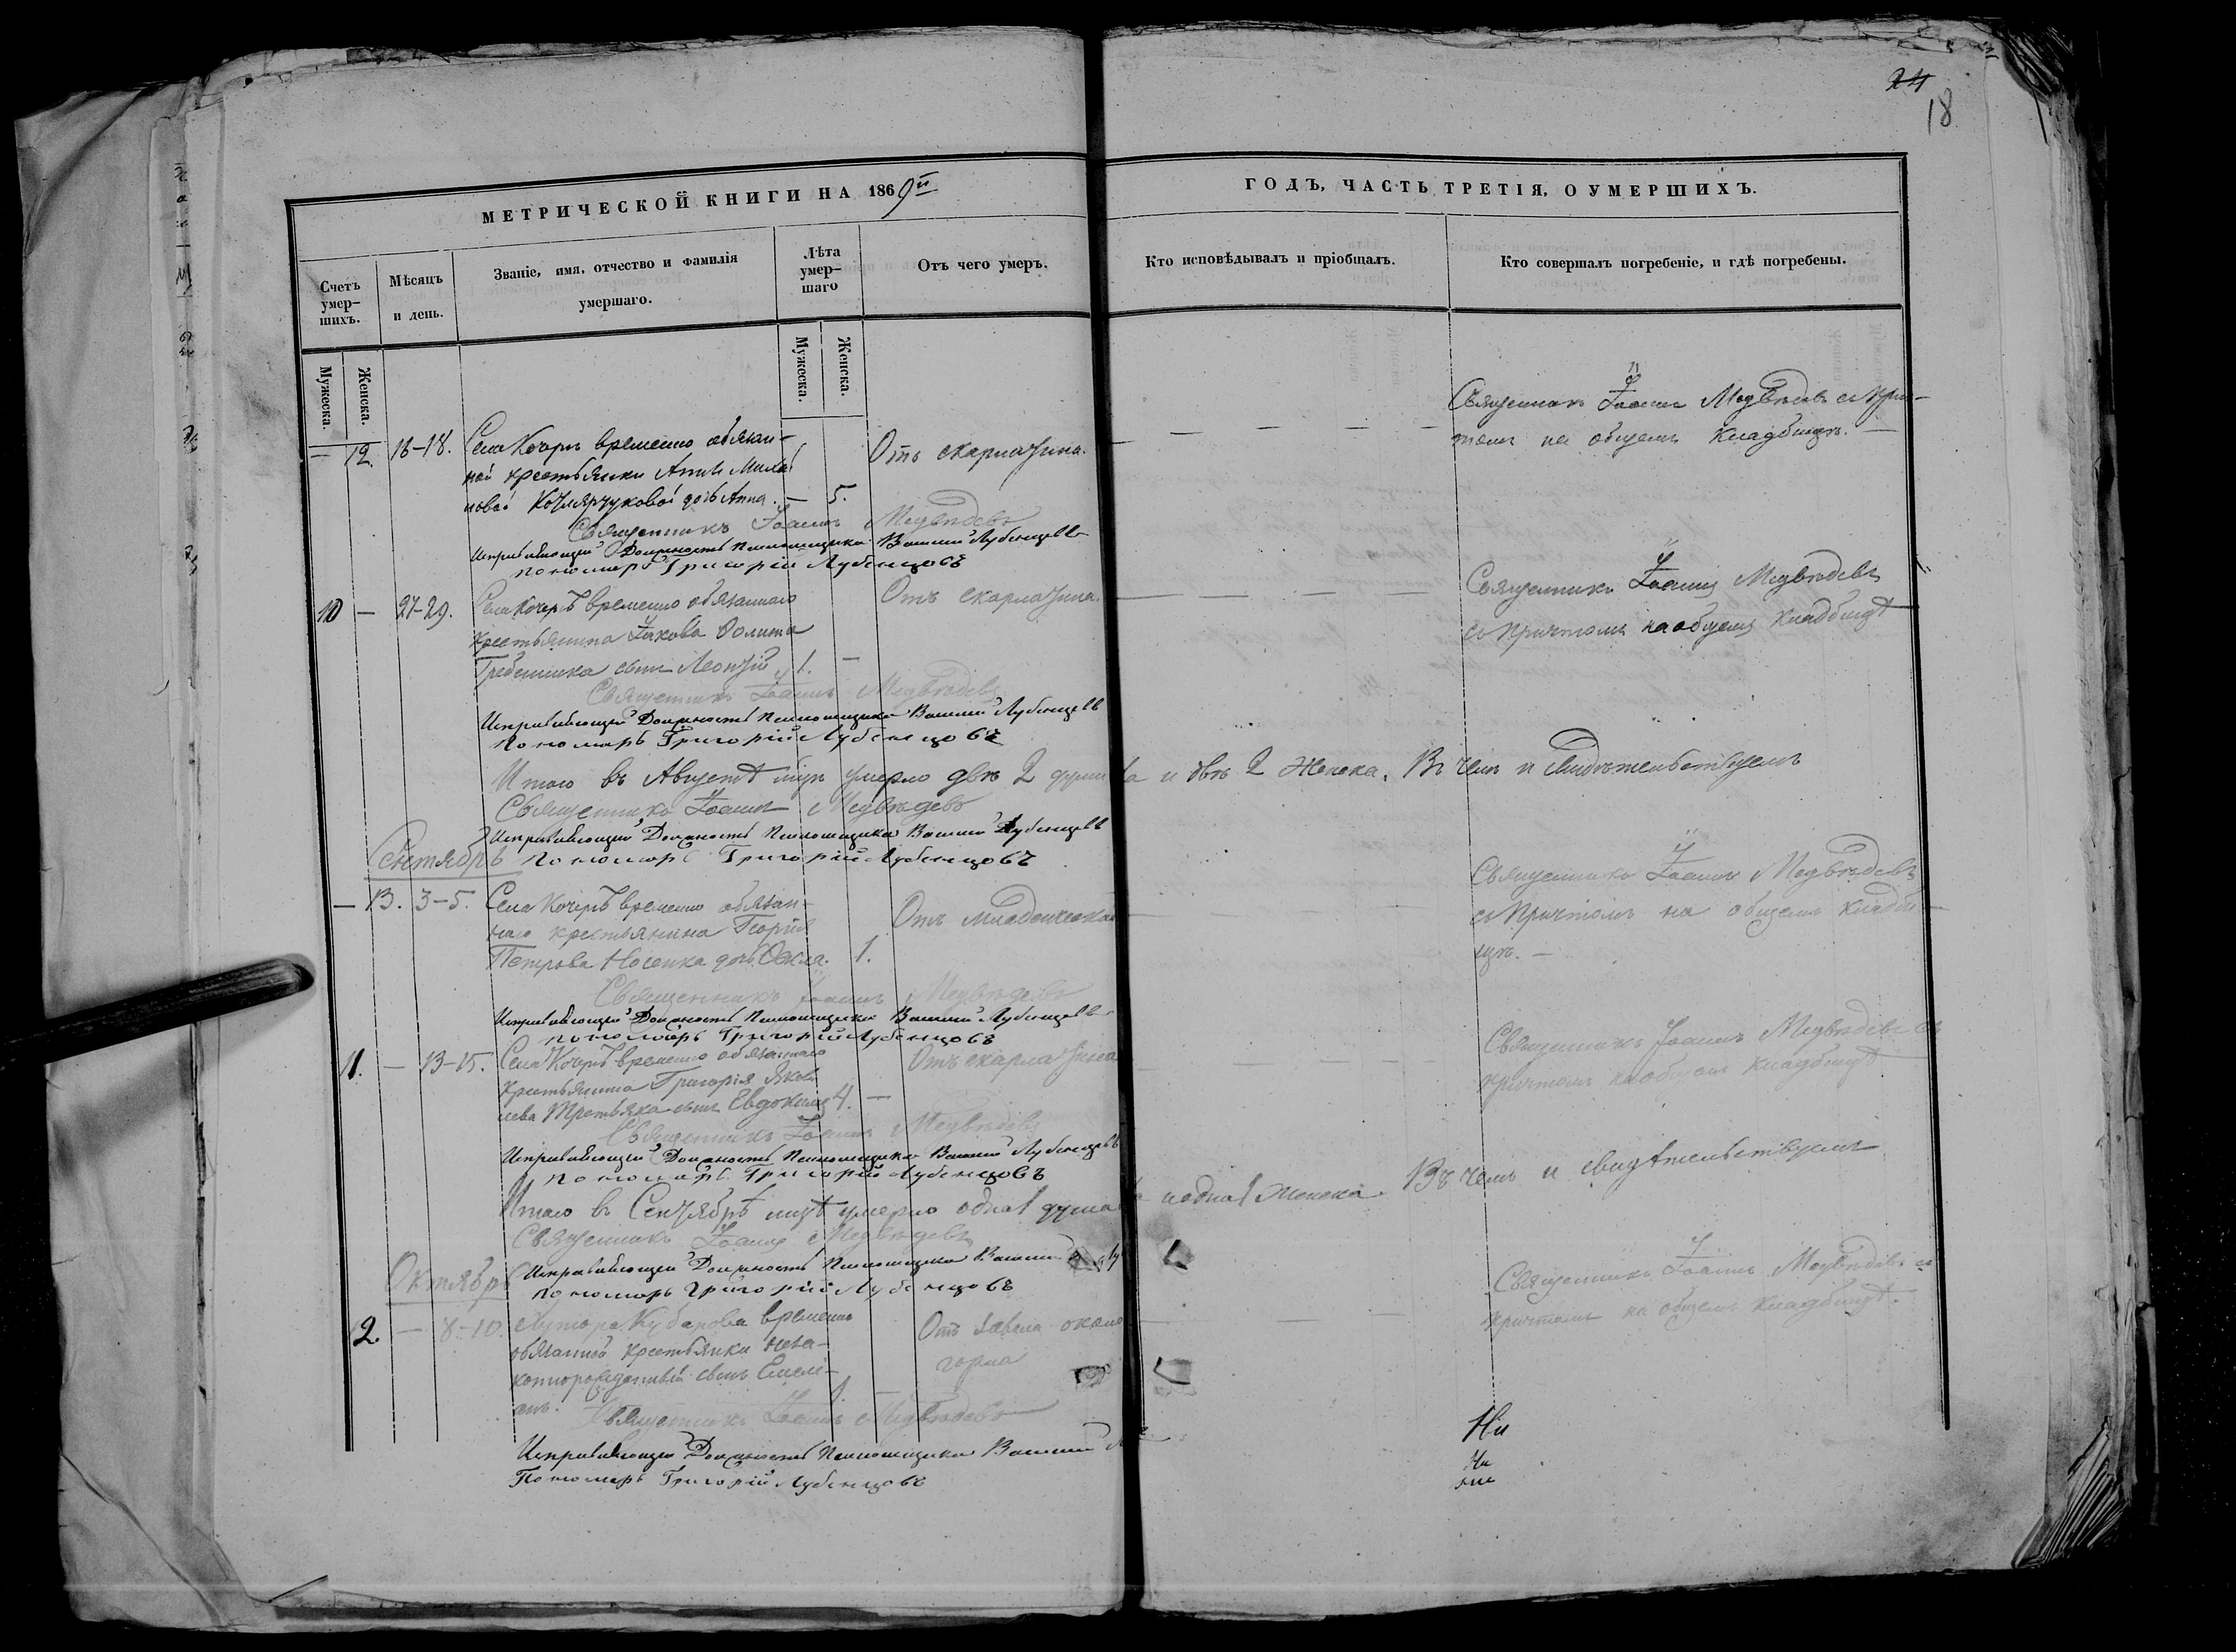 24
18
МЕТРИЧЕСКОЙ КНИГИ НА 1869й
ГОДЪ, ЧАСТЬ ТРЕТІЯ, О УМЕРШИХЪ.
Счетъ умер-
шихъ.
Мѣсяцъ
и день.
Званіе, имя, отчество и фамилія
умершаго.
Лѣта
умер-
шаго
Отъ чего умеръ.
Кто исповѣдывалъ и пріобщалъ.
Кто совершалъ погребеніе, и гдѣ погребены.
Мужеска.
Женска.
Мужеска.
Женска.
— 12. 16-18. Села Кочеръ временно обязан-
ной крестьянки Анны
дочь Анна. — 5.
Отъ скарлатина.
Священникъ Іоаннъ Медвѣдевъ съ при-
томъ на общемъ кладбищѣ. —
Священникъ Іоаннъ Медвѣдевъ
Исправляющій Должность Псаломщика Василій Лубенцовъ
пономарь Григорій Лубенцовъ
10 — 27-29. Села Кочеръ временно обязаннаго
крестьянина Іакова
Гребенника сынъ Леонтій 1. —
Отъ скарлатина.
Священникъ Іоаннъ Медвѣдевъ
съ причтомъ на общемъ кладбищѣ
Священникъ Іоаннъ Медвѣдевъ
Исправляющій Должность Псаломщика Василій Лубенцовъ
Пономарь Григорій Лубенцовъ
Итого въ Августѣ м-цѣ умерло двѣ 2 душ и двѣ 2 Женска. Въ чемъ и свидѣтельствуемъ
Священникъ Іоаннъ Медвѣдевъ
Исправляющій Должность Псаломщика Василій Лубенцовъ
Сентябрь Пономарь Григорій Лубенцовъ
— 13. 3-5. Села Кочеръ временно обязан-
наго крестьянина Георгія
Петрова Носенка дочь Ѳекла. 1.
Отъ младенческа
Священникъ Іоаннъ Медвѣдевъ
съ причтомъ на общемъ кладби-
щѣ. —
Священникъ Іоаннъ Медвѣдевъ
Исправляющій Должность Псаломщика Василій Лубенцовъ
пономарь Григорій Лубенцовъ
11. — 13-15. Села Кочеръ временно обязаннаго
крестьянина Григорія Яков-
лева Третьяка сынъ Евдокимъ 4. —
Отъ скарлатина
Священникъ Іоаннъ Медвѣдевъ съ
причтомъ на общемъ кладбищѣ
Священникъ Іоаннъ Медвѣдевъ
Исправляющій Должность Псаломщика Василій Лубенцовъ
Пономарь Григорій Лубенцовъ
Итого въ Сентябрѣ м-цѣ умерло одна 1 душа и одна 1 Женска. Въ чемъ и свидѣтельствуемъ
Священникъ Іоаннъ Медвѣдевъ
Октябрь Исправляющій Должность Псаломщика Василій
Пономарь Григорій Лубенцовъ
12. — 8-10. Хутора Кубарова временно
обязанной крестьянки неза-
коннорожденный сынъ Емелі-
анъ. 1. —
Отъ завала около
горла
Священникъ Іоаннъ Медвѣдевъ съ
причтомъ на общемъ кладбищѣ.
Священникъ Іоаннъ Медвѣдевъ
Исправляющій Должность Псаломщика Василій
Пономарь Григорій Лубенцовъ